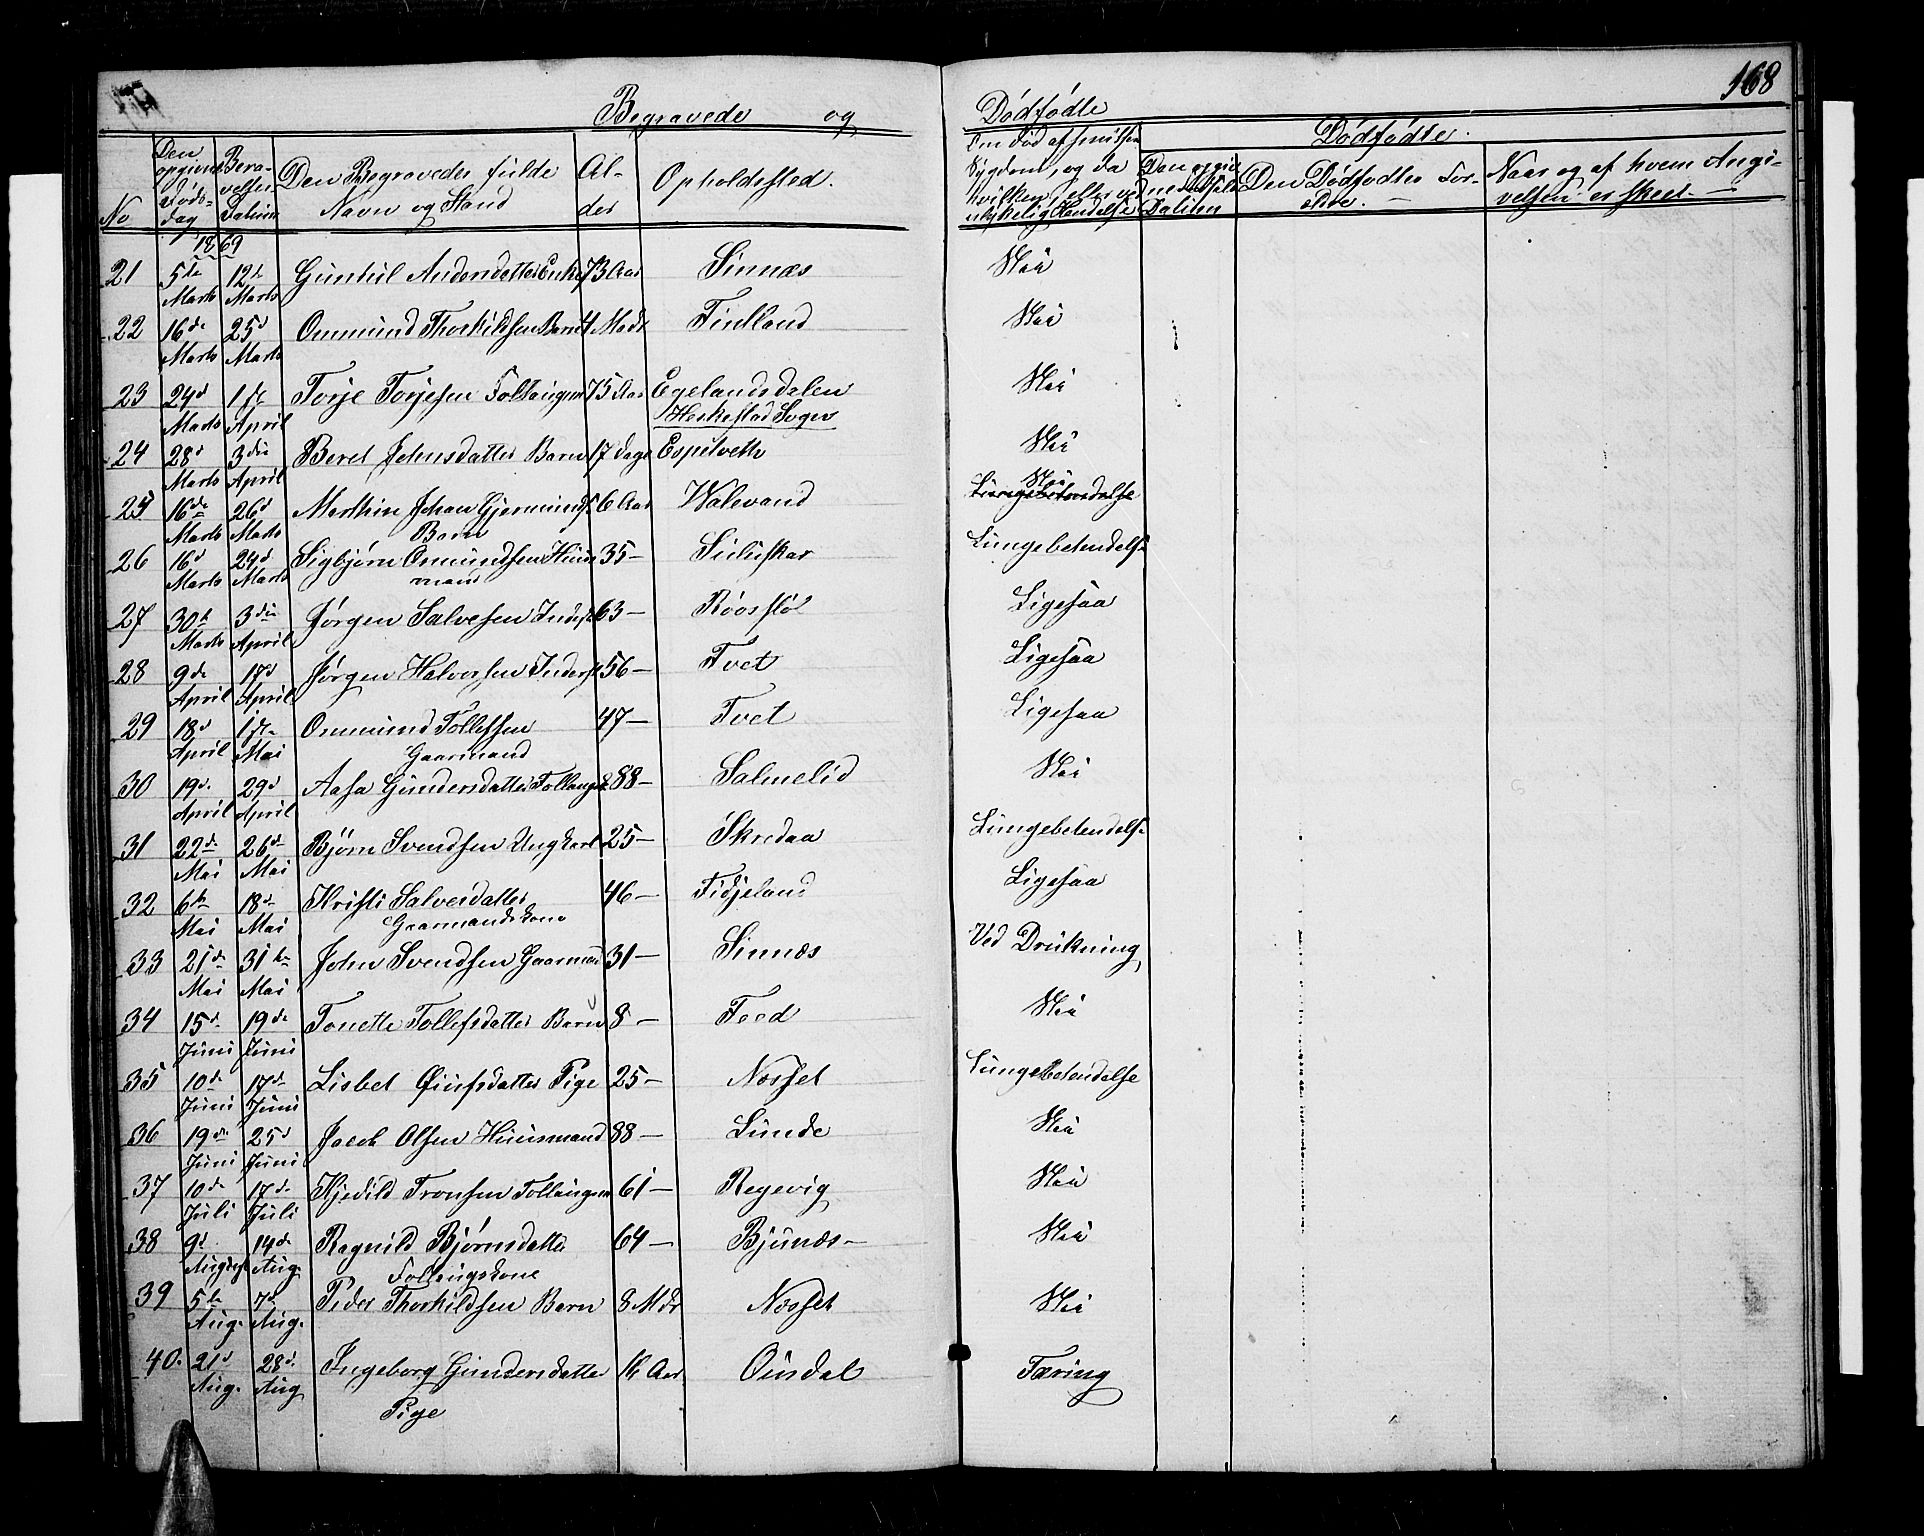 168
Begravede og Dødfødte
No
Den opgivne Døds-dag
Begravelses Datum
Den Begravedes fulde Navn og Stand
Al-der
Opholdssted.
Om død af smitsom Sygdom, og da hvilken, eller ved ulykkelig Hændelse
Dødfødte.
Datum
Den Dødfødtes For-ældre. —
Naar og af hvem Angi-velsen er skeet. —
1869
21 5te Marts 12te Marts Gunhil Andersdatter Enke 73 Aar Sinnæs Nei
22 16de Marts 25d Marts Ommund Thorkildsen Barn 4 Mdr Fintland Nei
23 24d Marts 1ste April Torje Torjesen Foltaugem 75 Aar Egelandsdalen Heskestad Sogn Nei
24 28d Marts 3die April Beret Johnsdatter Barn 17 dage Espetveth Nei
25 16de Marts 26d Marts Marthin Johan Gjermunds Barn 6 Aar Walevand Nei Lungebetendelse
26 16d Marts 24d Marts Sigbjørn Ommundsen Huusmand 35 — Suluskar Lungebetendelse
27 30te Marts 3die April Jørgen Salvesen Inderst 63 — Ligesaa
28 9de April 17d April Jørgen Halvorsen Inderst 56 — Tvet Ligesaa
29 18d April 1ste Mai Ommund Tollefsen Gaarmand 47 — Tvet Ligesaa
30 19d. April 29d April Aasa Gundersdatter Follaugsk 88 — Salmelid Nei
31 22de Mai 26de Mai Bjørn Svendsen Ungkarl 25 — Skredaa Lungebetendelse
32 6te Mai 18de Mai Kristi Salvesdatter Gaarmandskone 46 — Fidjeland Ligesaa
33 21de Mai 31te Mai John Svendsen Gaarmand 31 — Sinnæs Ved Drukning
34 15d. Juni 19de Juni Tonette Tollefsdatter Barn 8 — Feed Nei
35 10de Juni 17de Juni Lisbet Øiufsdatter Pige 25 — Nosset Lungebetendelse
36 19de Juni 25d Juni Jacob Olsen Huusmand 88 — Lunde Nei
37 10de Juli 17de Juli Kjedild Tronsen Follaugem 61 — Regevig Nei
38 9d August 14de Aug. Ragnild Bjørnsdatter Follaugskone 64 — Bjunæs — Nei
39 5te Aug. 7de Aug. Peder Thorkildsen Barn 8 Mdr Nosset Nei
40. 21d Aug. 28d. Aug Ingeborg Gundersdatter Pige 16 Aar Ousdal Tæring